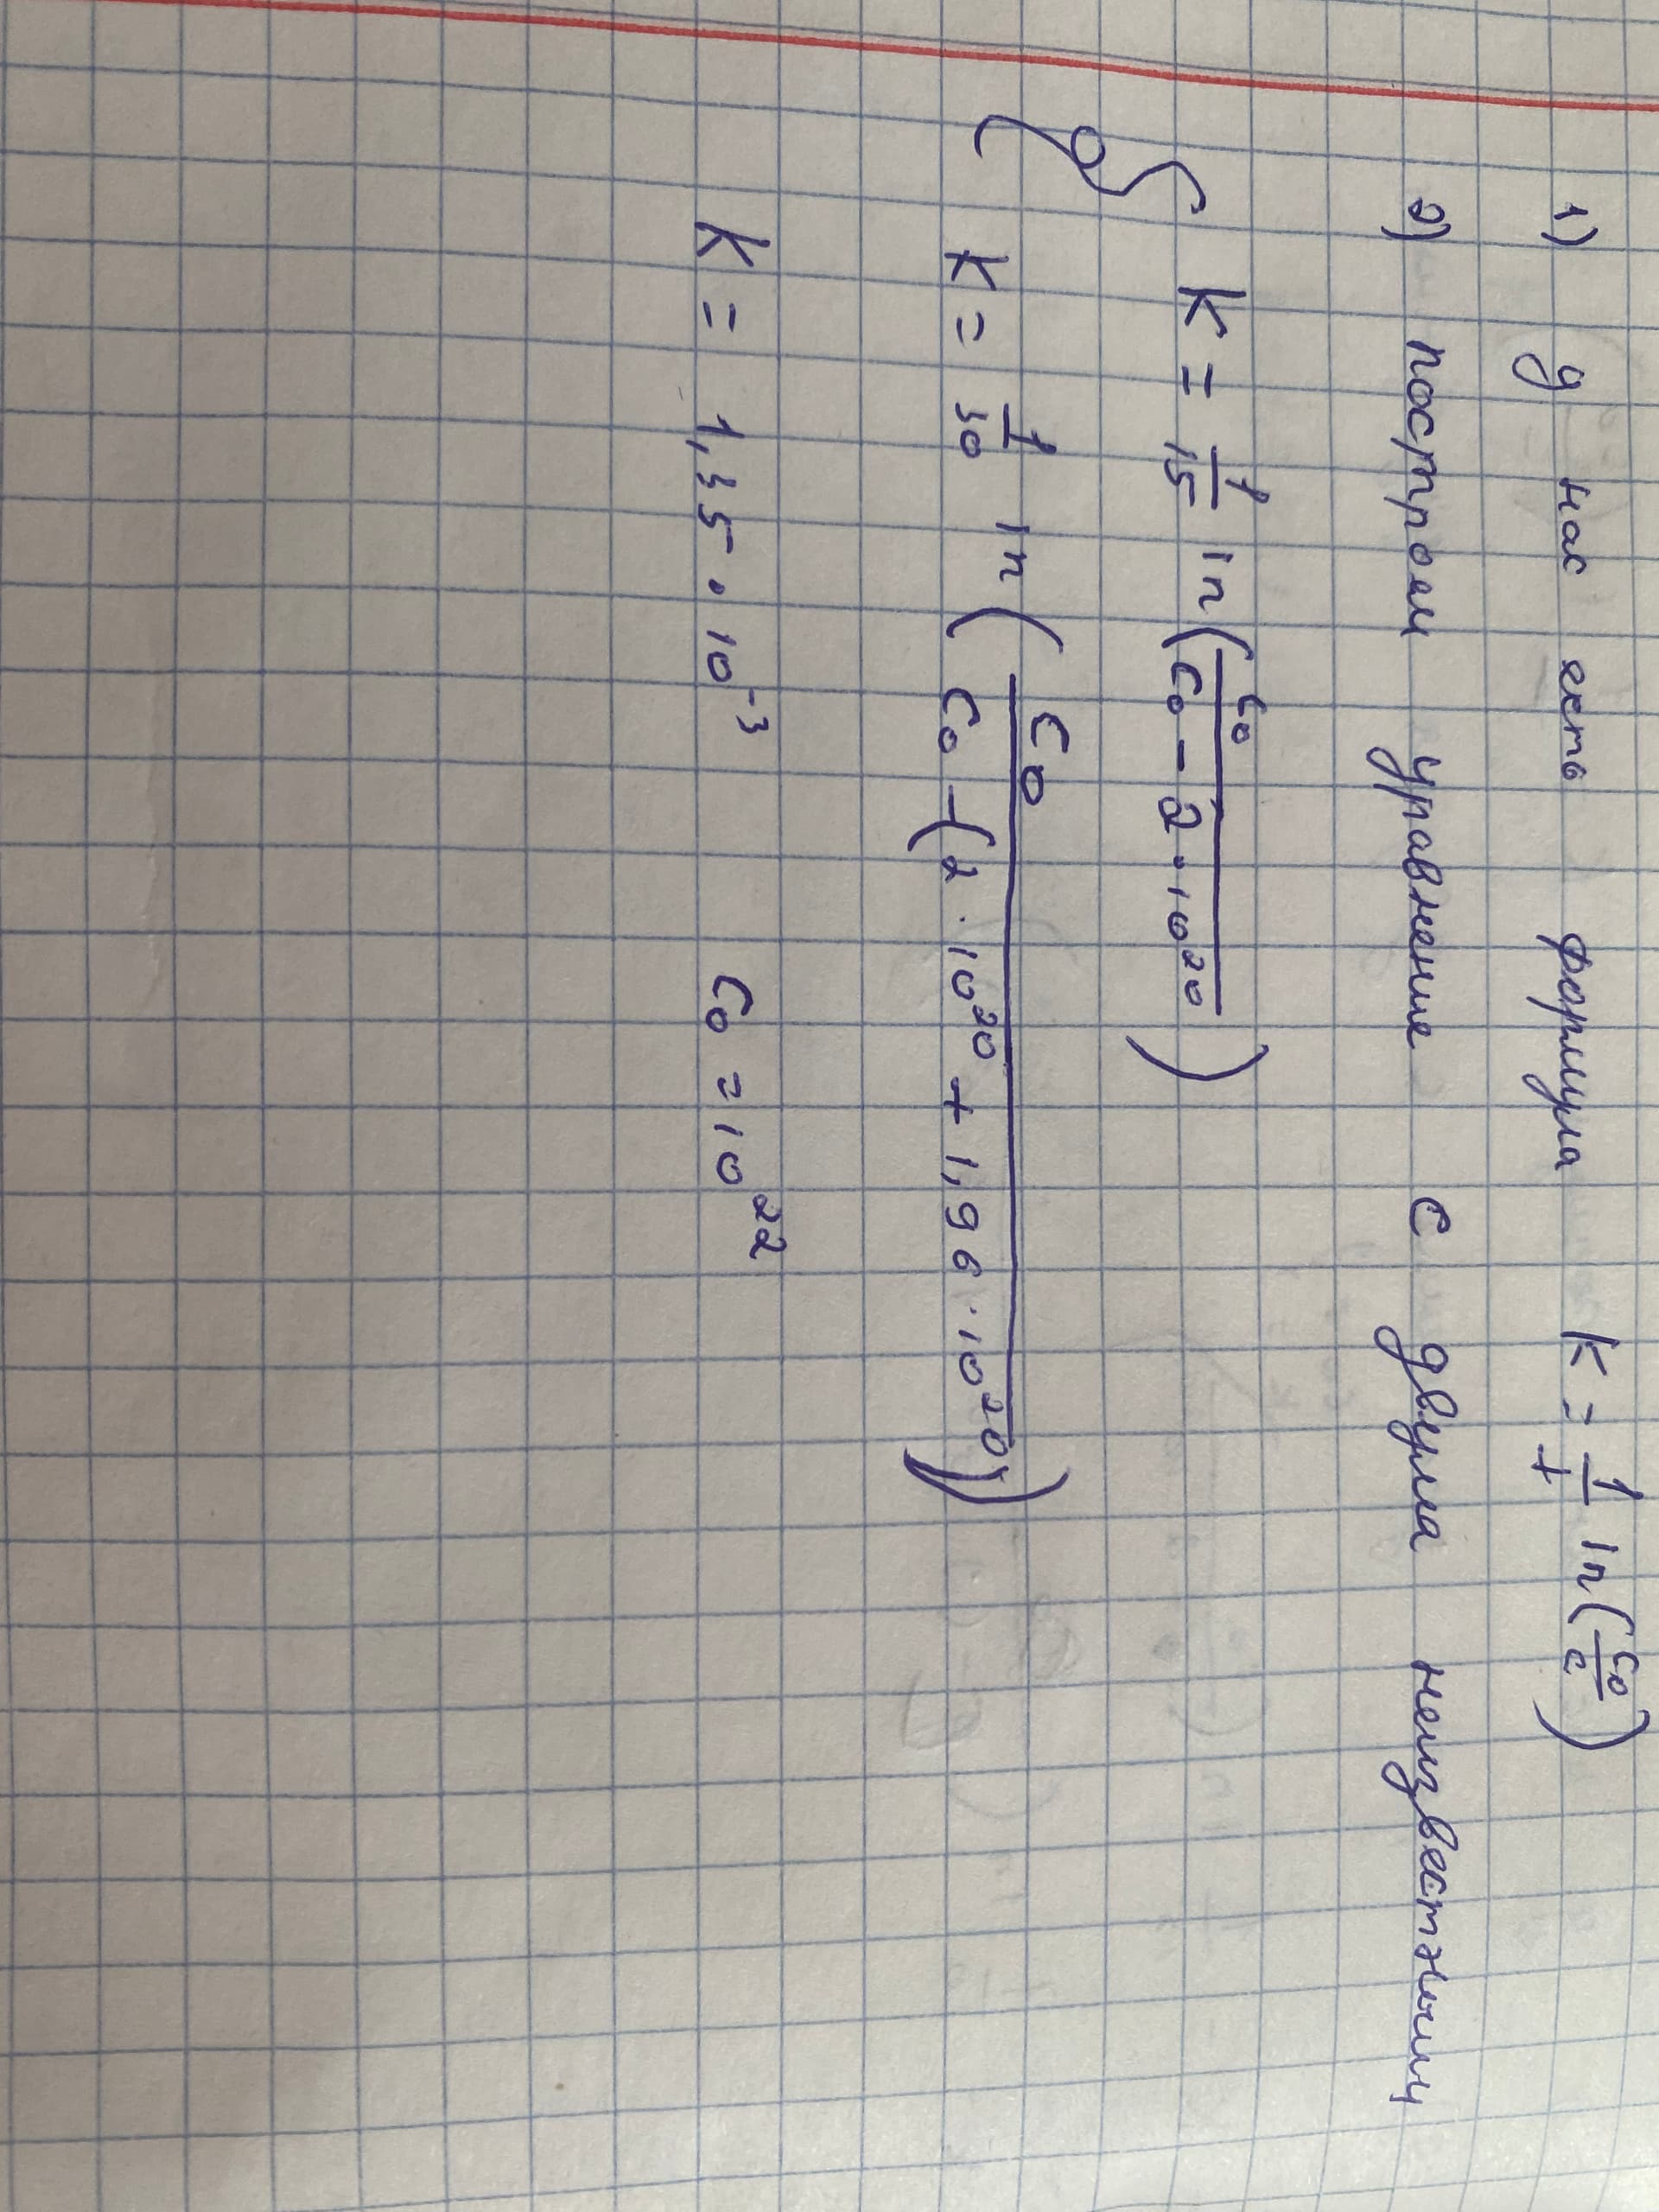 1) У нас есть формула K = 1/t ln(C0/C)
2) построем уравнение с двумя неизвестными
K = 1/15 ln(C0/(C0 - 2 · 10^20))
K = 1/30 ln(C0/(C0 - (2 · 10^20 + 1,96 · 10^20)))
K = 1,35 · 10^-3 C0 = 10^22